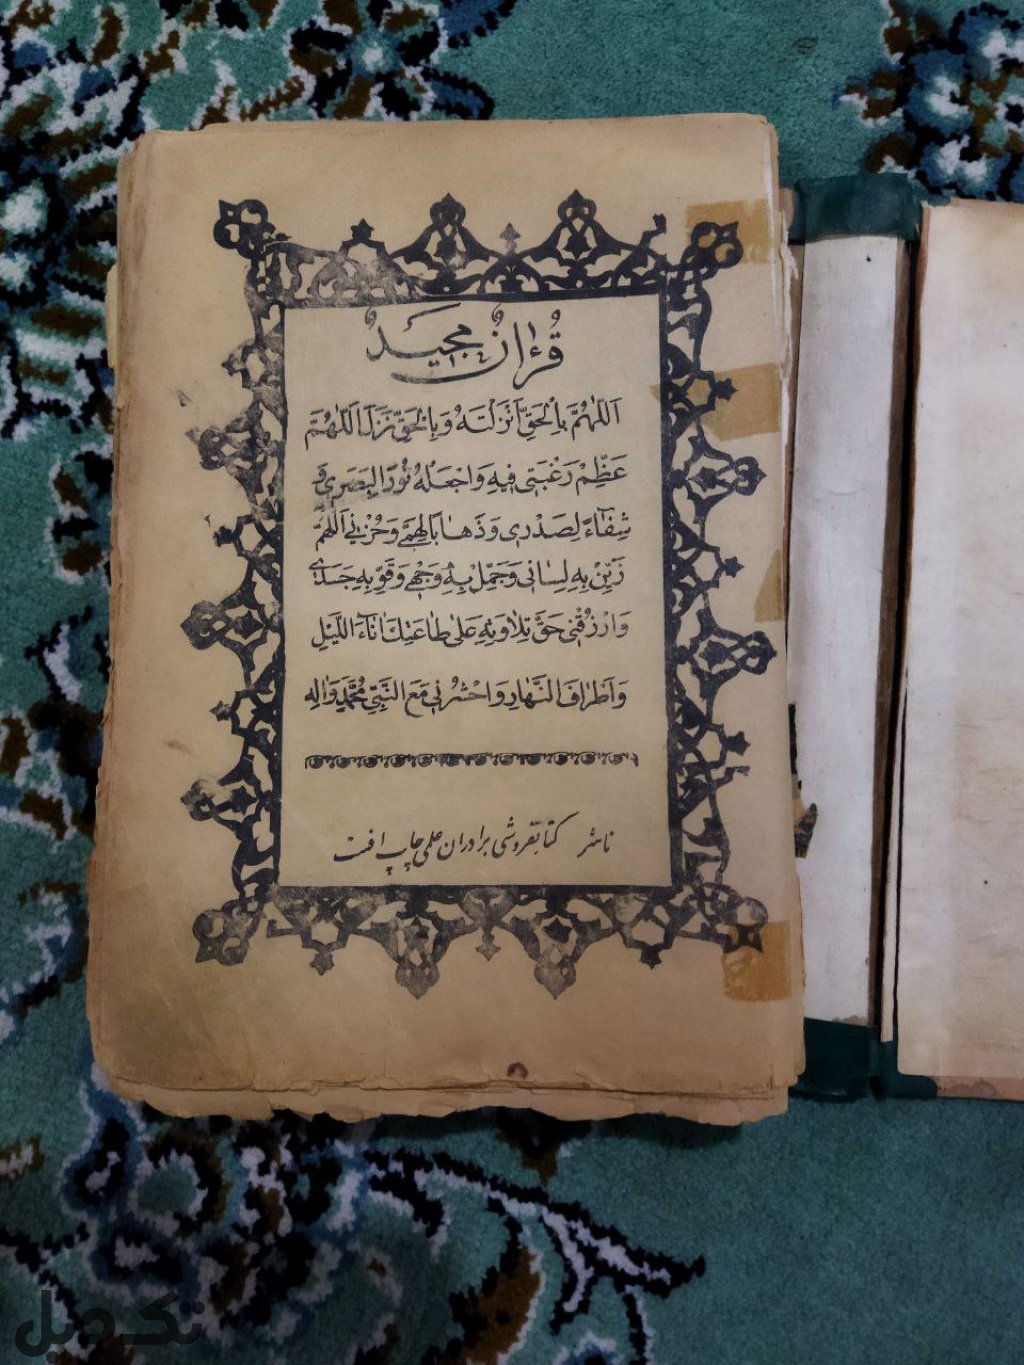 قُرْءٰانٌ مَجيدٌ
اَللّٰهُمَّ بِالْحَقِّ اَنْزَلْتَهُ وَبِالْحَقِّ نَزَلَ اَللّٰهُمَّ
عَظِّمْ رَغْبَتي فيهِ وَاجْعَلْهُ نُورًا لِبَصَري وَ
شِفٰآءً لِصَدْري وَذَهٰابًا لِهَمّي وَحُزْني اَللّٰهُمَّ
زَيِّنْ بِهِ لِسٰاني وَجَمِّلْ بِهِ وَجْهي وَقَوِّ بِهِ جَسَدي
وَارْزُقْني حَقَّ تِلاٰوَتِهِ عَلٰى طٰاعَتِكَ اٰنٰاءَ اللَّيْلِ
وَاَطْرٰافَ النَّهٰارِ وَاحْشُرْني مَعَ النَّبِيِّ مُحَمَّدٍ وَاٰلِهِ
ناشر کتابفروشی برادران علمی چاپ افست
تک دبل